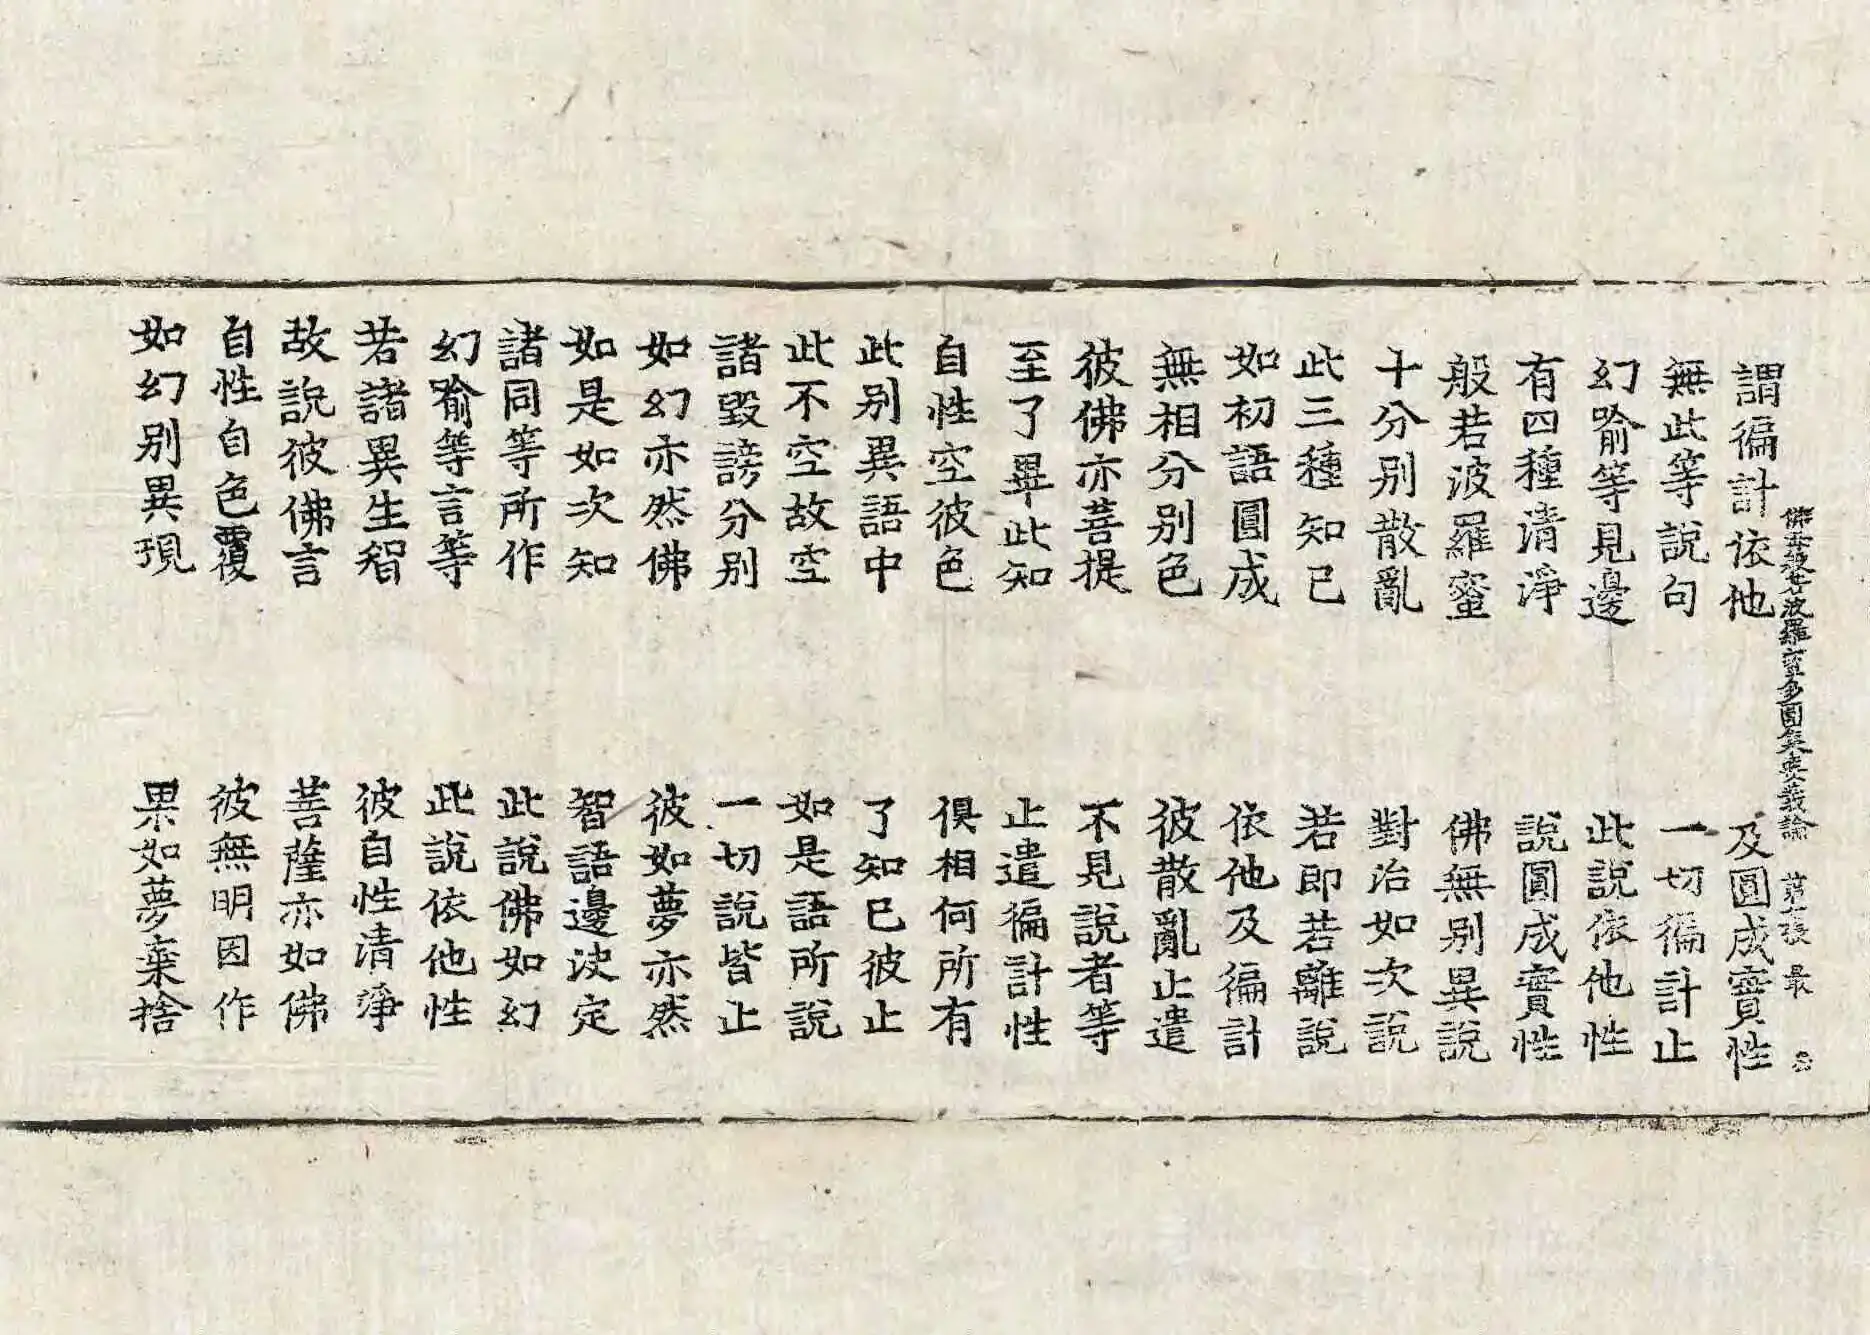 佛母般若波羅蜜多圓集要義論 第二張 最
謂徧計依他 及圓成實性
無此等說句 一切徧計止
幻喻等見邊 此說依他性
有四種清淨 說圓成實性
般若波羅蜜 佛無別異說
十分別散亂 對治如次說
此三種知已 若即若離說
如初語圓成 依他及徧計
無相分別色 彼散亂止遣
彼佛亦菩提 不見說者等
至了畢此知 止遣徧計性
自性空彼色 俱相何所有
此別異語中 了知已彼止
此不空故空 如是語所說
諸毀謗分別 一切說皆止
如幻亦然佛 彼如夢亦然
如是如次知 智語邊決定
諸同等所作 此說佛如幻
幻喻等言等 此說依他性
若諸異生智 彼自性清淨
故說彼佛言 菩薩亦如佛
自性自色覆 彼無明因作
如幻別異現 果如夢棄捨